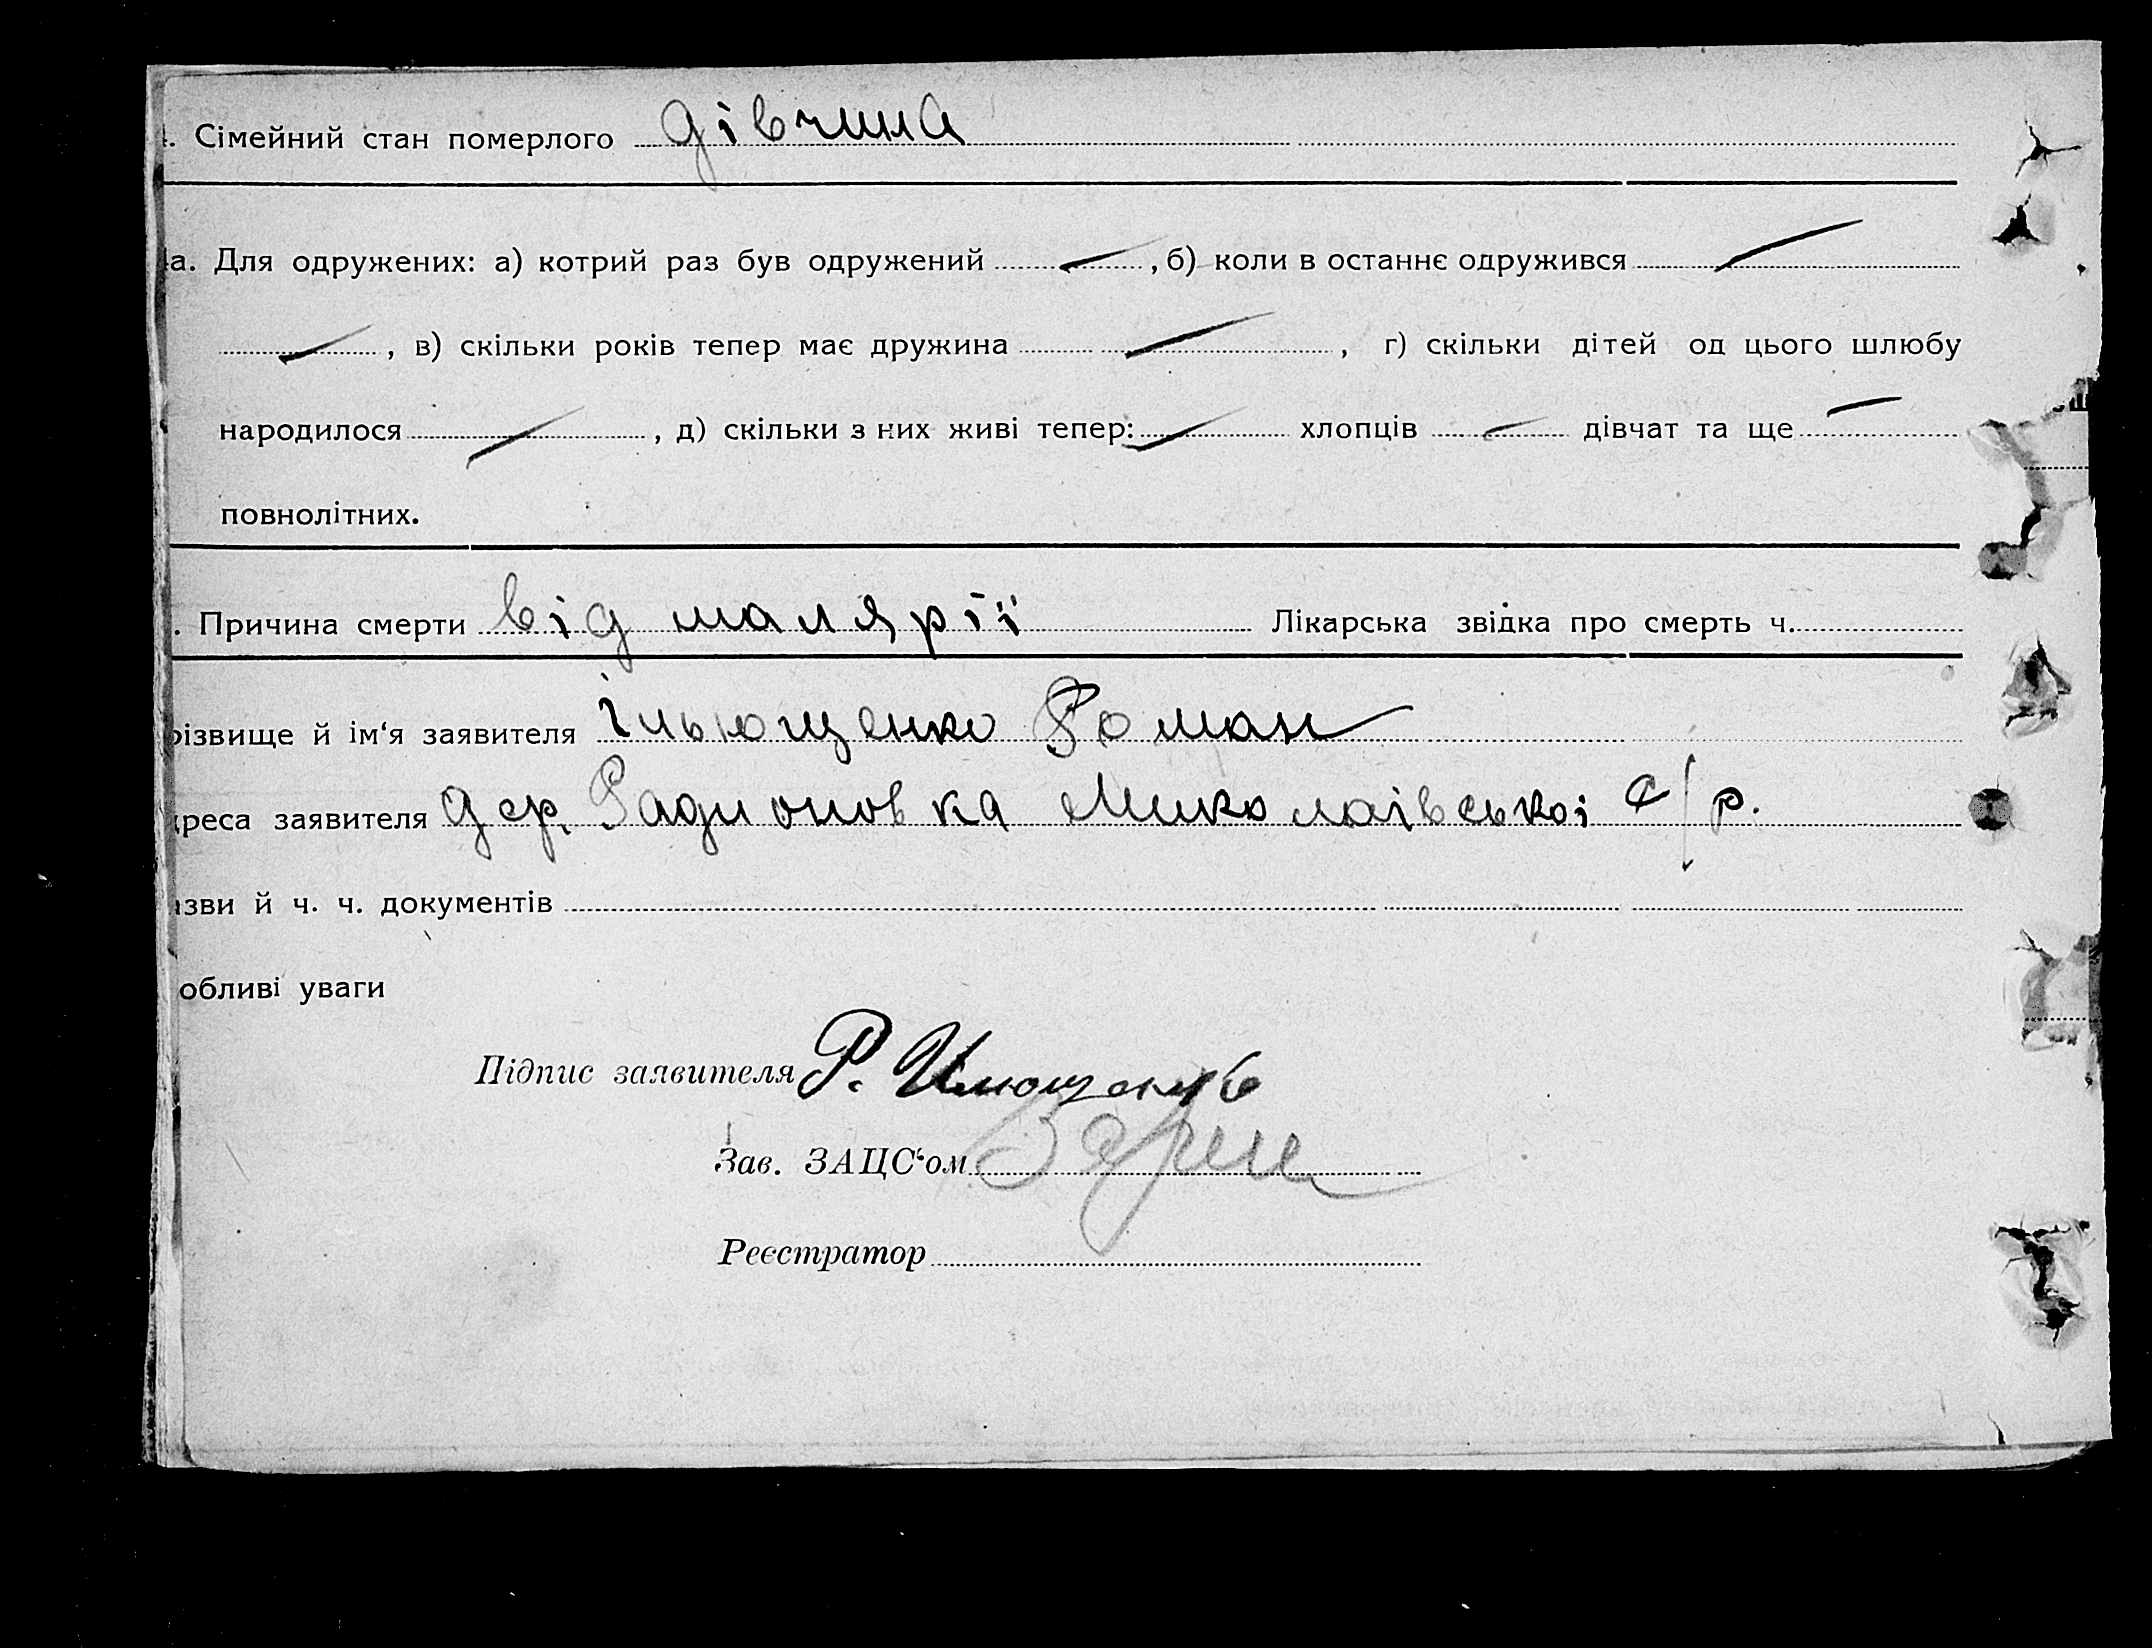 . Сімейний стан померлого дівчина
а. Для одружених: а) котрий раз був одружений , б) коли в останнє одружився
, в) скільки років тепер має дружина , г) скільки дітей од цього шлюбу
народилося , д) скільки з них живі тепер: хлопців дівчат та ще
повнолітних.
. Причина смерти від малярії Лікарська звідка про смерть ч.
різвище й ім‘я заявителя Ільющенко Роман
реса заявителя дер. Радионовка Миколаівськоі с/р.
зви й ч. ч. документів
обливі уваги
Підпис заявителя Р. Илющенко
Зав. ЗАЦС‘ом
Реєстратор